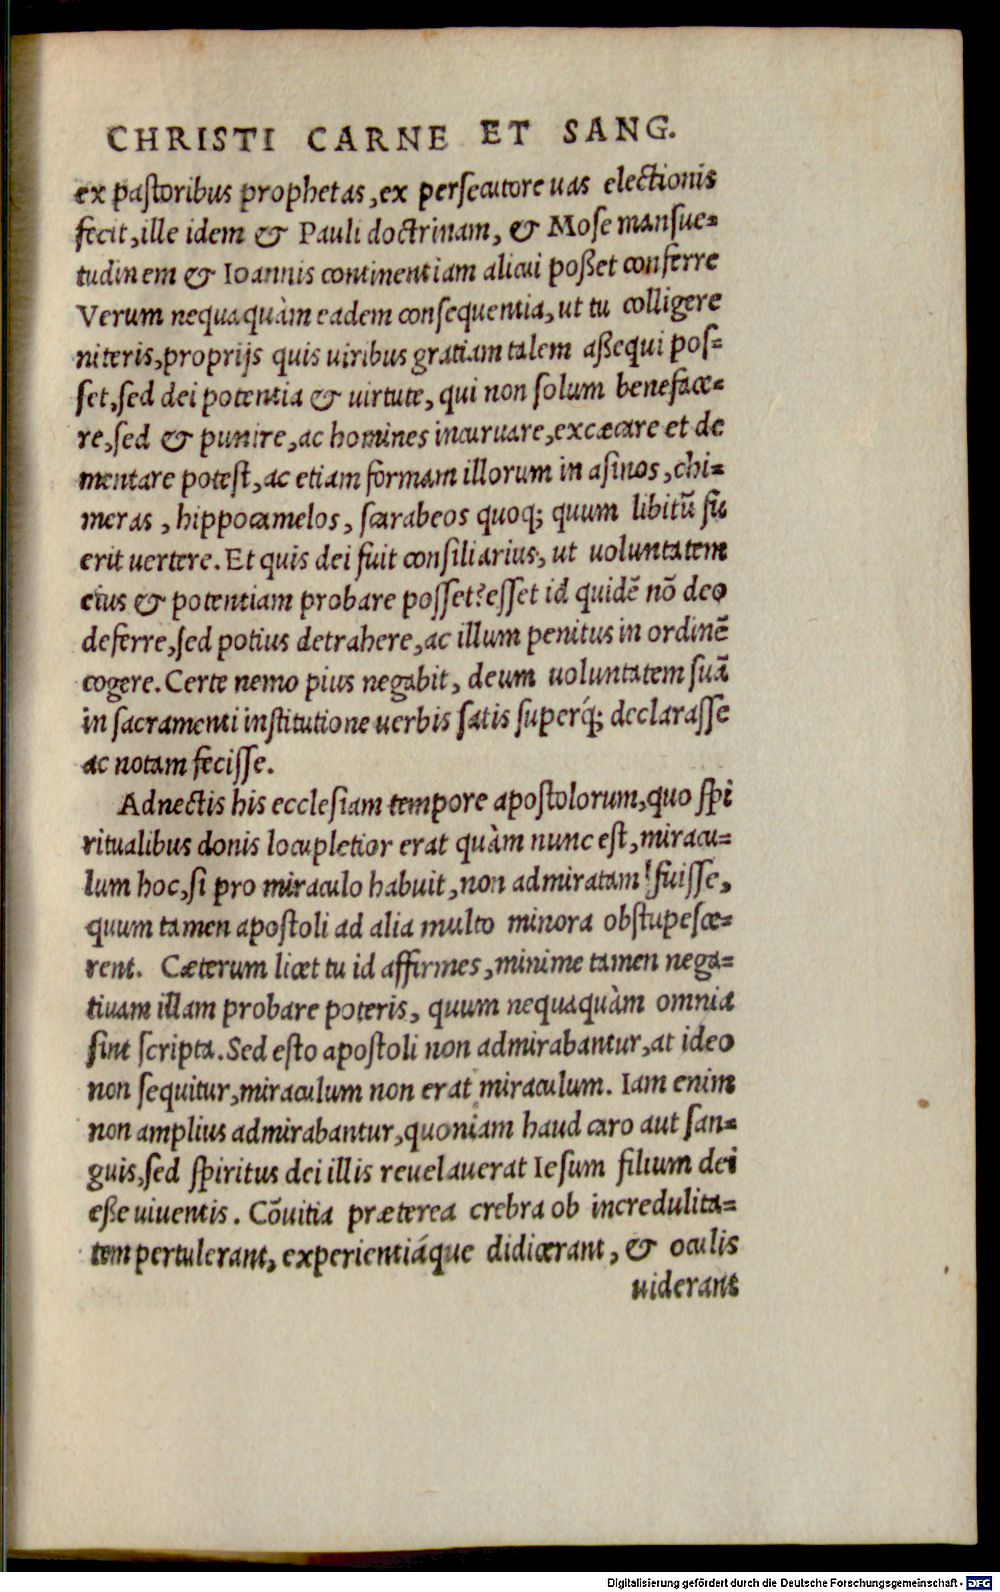 CHRISTI CARNE ET SANG.
ex paſtoribus prophetas, ex perſecutore uas electionis
fecit, ille idem & Pauli doctrinam, & Moſe manſue=
tudinem & Ioannis continentiam alicui poßet conferre
Verum nequaquàm eadem conſequentia, ut tu colligere
niteris, proprijs quis uiribus gratiam talem aßequi poſ=
ſet, ſed dei potentia & uirtute, qui non ſolum beneface=
re, ſed & punire, ac homines incuruare, excæcare et de
mentare poteſt, ac etiam formam illorum in aſinos, chi=
meras, hippocamelos, ſcarabeos quoq; quum libitū fu
erit uertere. Et quis dei fuit conſiliarius, ut uoluntatem
eius & potentiam probare poſſet? eſſet id quidē nō deo
deferre, ſed potius detrahere, ac illum penitus in ordinē
cogere. Certe nemo pius negabit, deum uoluntatem ſuā
in ſacramenti inſtitutione uerbis ſatis ſuperq́; declaraſſe
ac notam feciſſe.
Adnectis his eccleſiam tempore apoſtolorum, quo ſpi
ritualibus donis locupletior erat quàm nunc eſt, miracu=
lum hoc, ſi pro miraculo habuit, non admiratam fuiſſe,
quum tamen apoſtoli ad alia multo minora obſtupeſce=
rent. Cæterum licet tu id affirmes, minime tamen nega=
tiuam illam probare poteris, quum nequaquàm omnia
ſint ſcripta. Sed eſto apoſtoli non admirabantur, at ideo
non ſequitur, miraculum non erat miraculum. Iam enim
non amplius admirabantur, quoniam haud caro aut ſan=
guis, ſed ſpiritus dei illis reuelauerat Ieſum filium dei
eße uiuentis. Cōuitia præterea crebra ob incredulita=
tem pertulerant, experientiáque didicerant, & oculis
uiderant
Digitalisierung gefördert durch die Deutsche Forschungsgemeinschaft - DFG